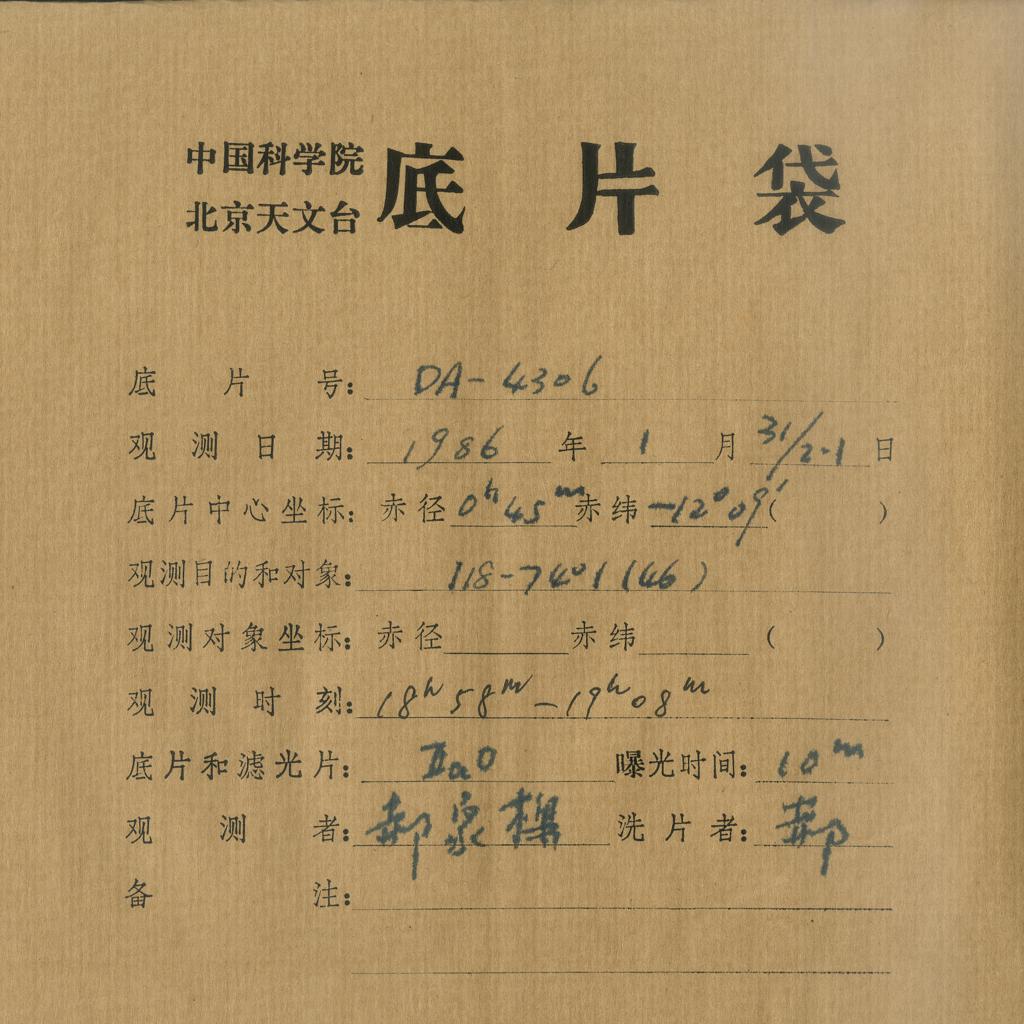 中国科学院
北京天文台 底片袋
底片号: DA-4306
观测日期: 1986年1月31/2.1日
底片中心坐标: 赤径 0h45m 赤纬 -12°09′( )
观测目的和对象: 118-7401(46)
观测对象坐标: 赤径 赤纬 ( )
观测时刻: 18h58m-19h08m
底片和滤光片: IIaO 曝光时间: 10m
观测者: 郝泉 洗片者: 郝
备注: